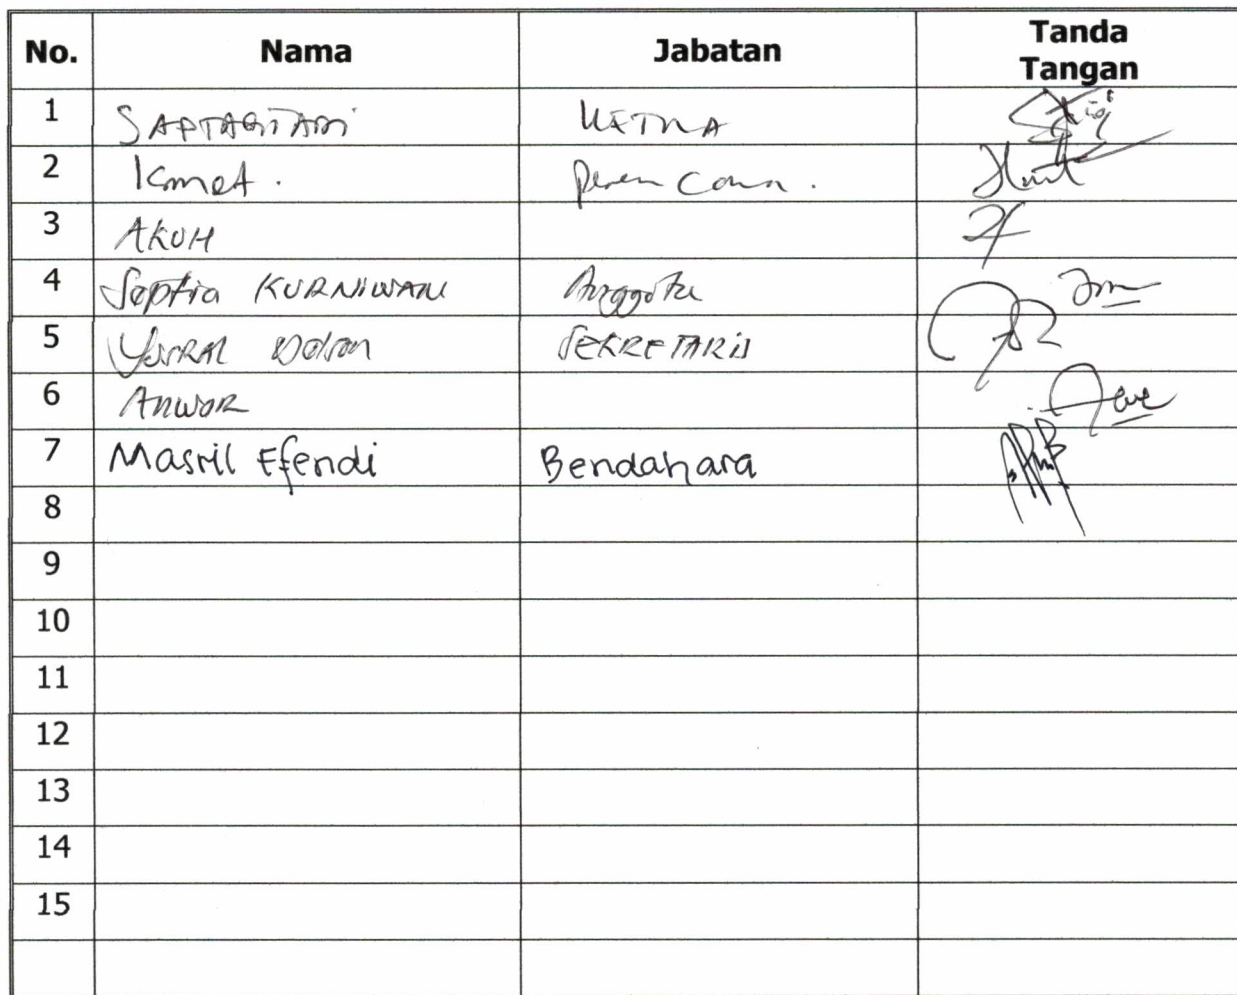 No. Nama Jabatan Tanda
Tangan
1 SAPTAGITARI KETUA
2 Ismet .
3 AKUH
4 Septia KURNIWAN Anggota
5 SEKRETARIS
6 Anwar
7 Masril Efendi Bendahara
8
9
10
11
12
13
14
15